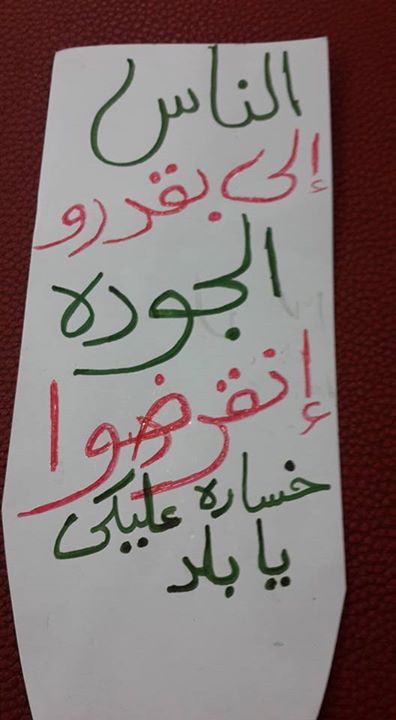 الناس
إلى بقدرو
الجوده
إنقرضوا
خساره عليكى
يا بلد